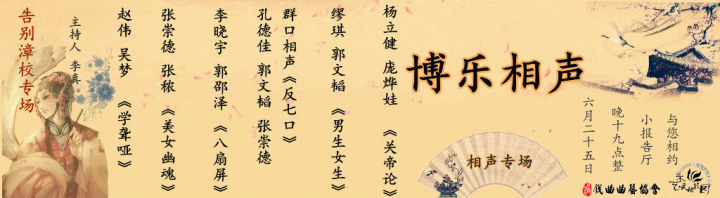 博乐相声
相声专场
与您相约
小报告厅
晚十九点整
六月二十五日
戏曲曲艺协会
杨立健 庞烨娃 《关帝论》
缪琪 郭文韬 《男生女生》
群口相声《反七口》
孔德佳 郭文韬 张崇德
李晓宇 郭邵泽 《八扇屏》
张崇德 张秾 《美女幽魂》
赵伟 吴梦 《学聋哑》
主持人 李真
告别漳校专场